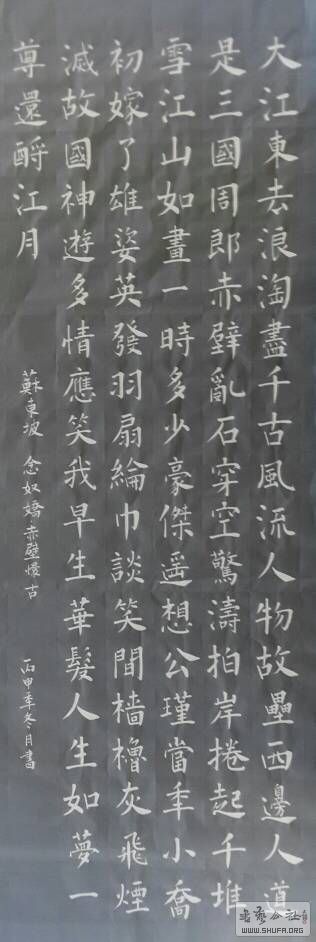 大江東去浪淘盡千古風流人物故壘西邊人道
是三國周郎赤壁亂石穿空驚濤拍岸捲起千堆
雪江山如畫一時多少豪傑遥想公瑾當年小喬
初嫁了雄姿英發羽扇綸巾談笑間檣櫓灰飛煙
滅故國神遊多情應笑我早生華髮人生如夢一
尊還酹江月
蘇東坡 念奴嬌赤壁懷古 丙申年冬月書
書藝公社
WWW.SHUFA.ORG